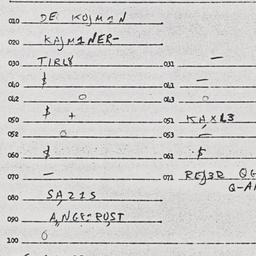 010 DE KOJM1N
020 KAJM1NER-
030 TIRL8 031 —
040 $ 041 —
042 0 043 0
050 $ + 051 KAXL3
052 0 053 —
060 $ 061 $
070 — 071 REJ3R QE
Q-A
080 SA21S
090 A,NGE-RUST
100 0